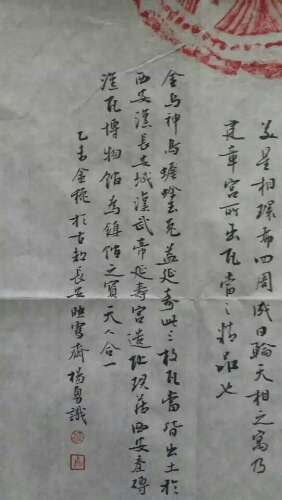 星相環布四周成日輪天相之寓乃
建章宮所出瓦當之精品也
金烏神烏蟾蜍玉兔益延壽此三枚瓦當皆出土於
西安漢長安城漢武帝延壽宮遺址現藏西安秦磚
漢瓦博物館為鎮館之寶天人合一
乙未金秋於古都長安 寫齋楊勇識